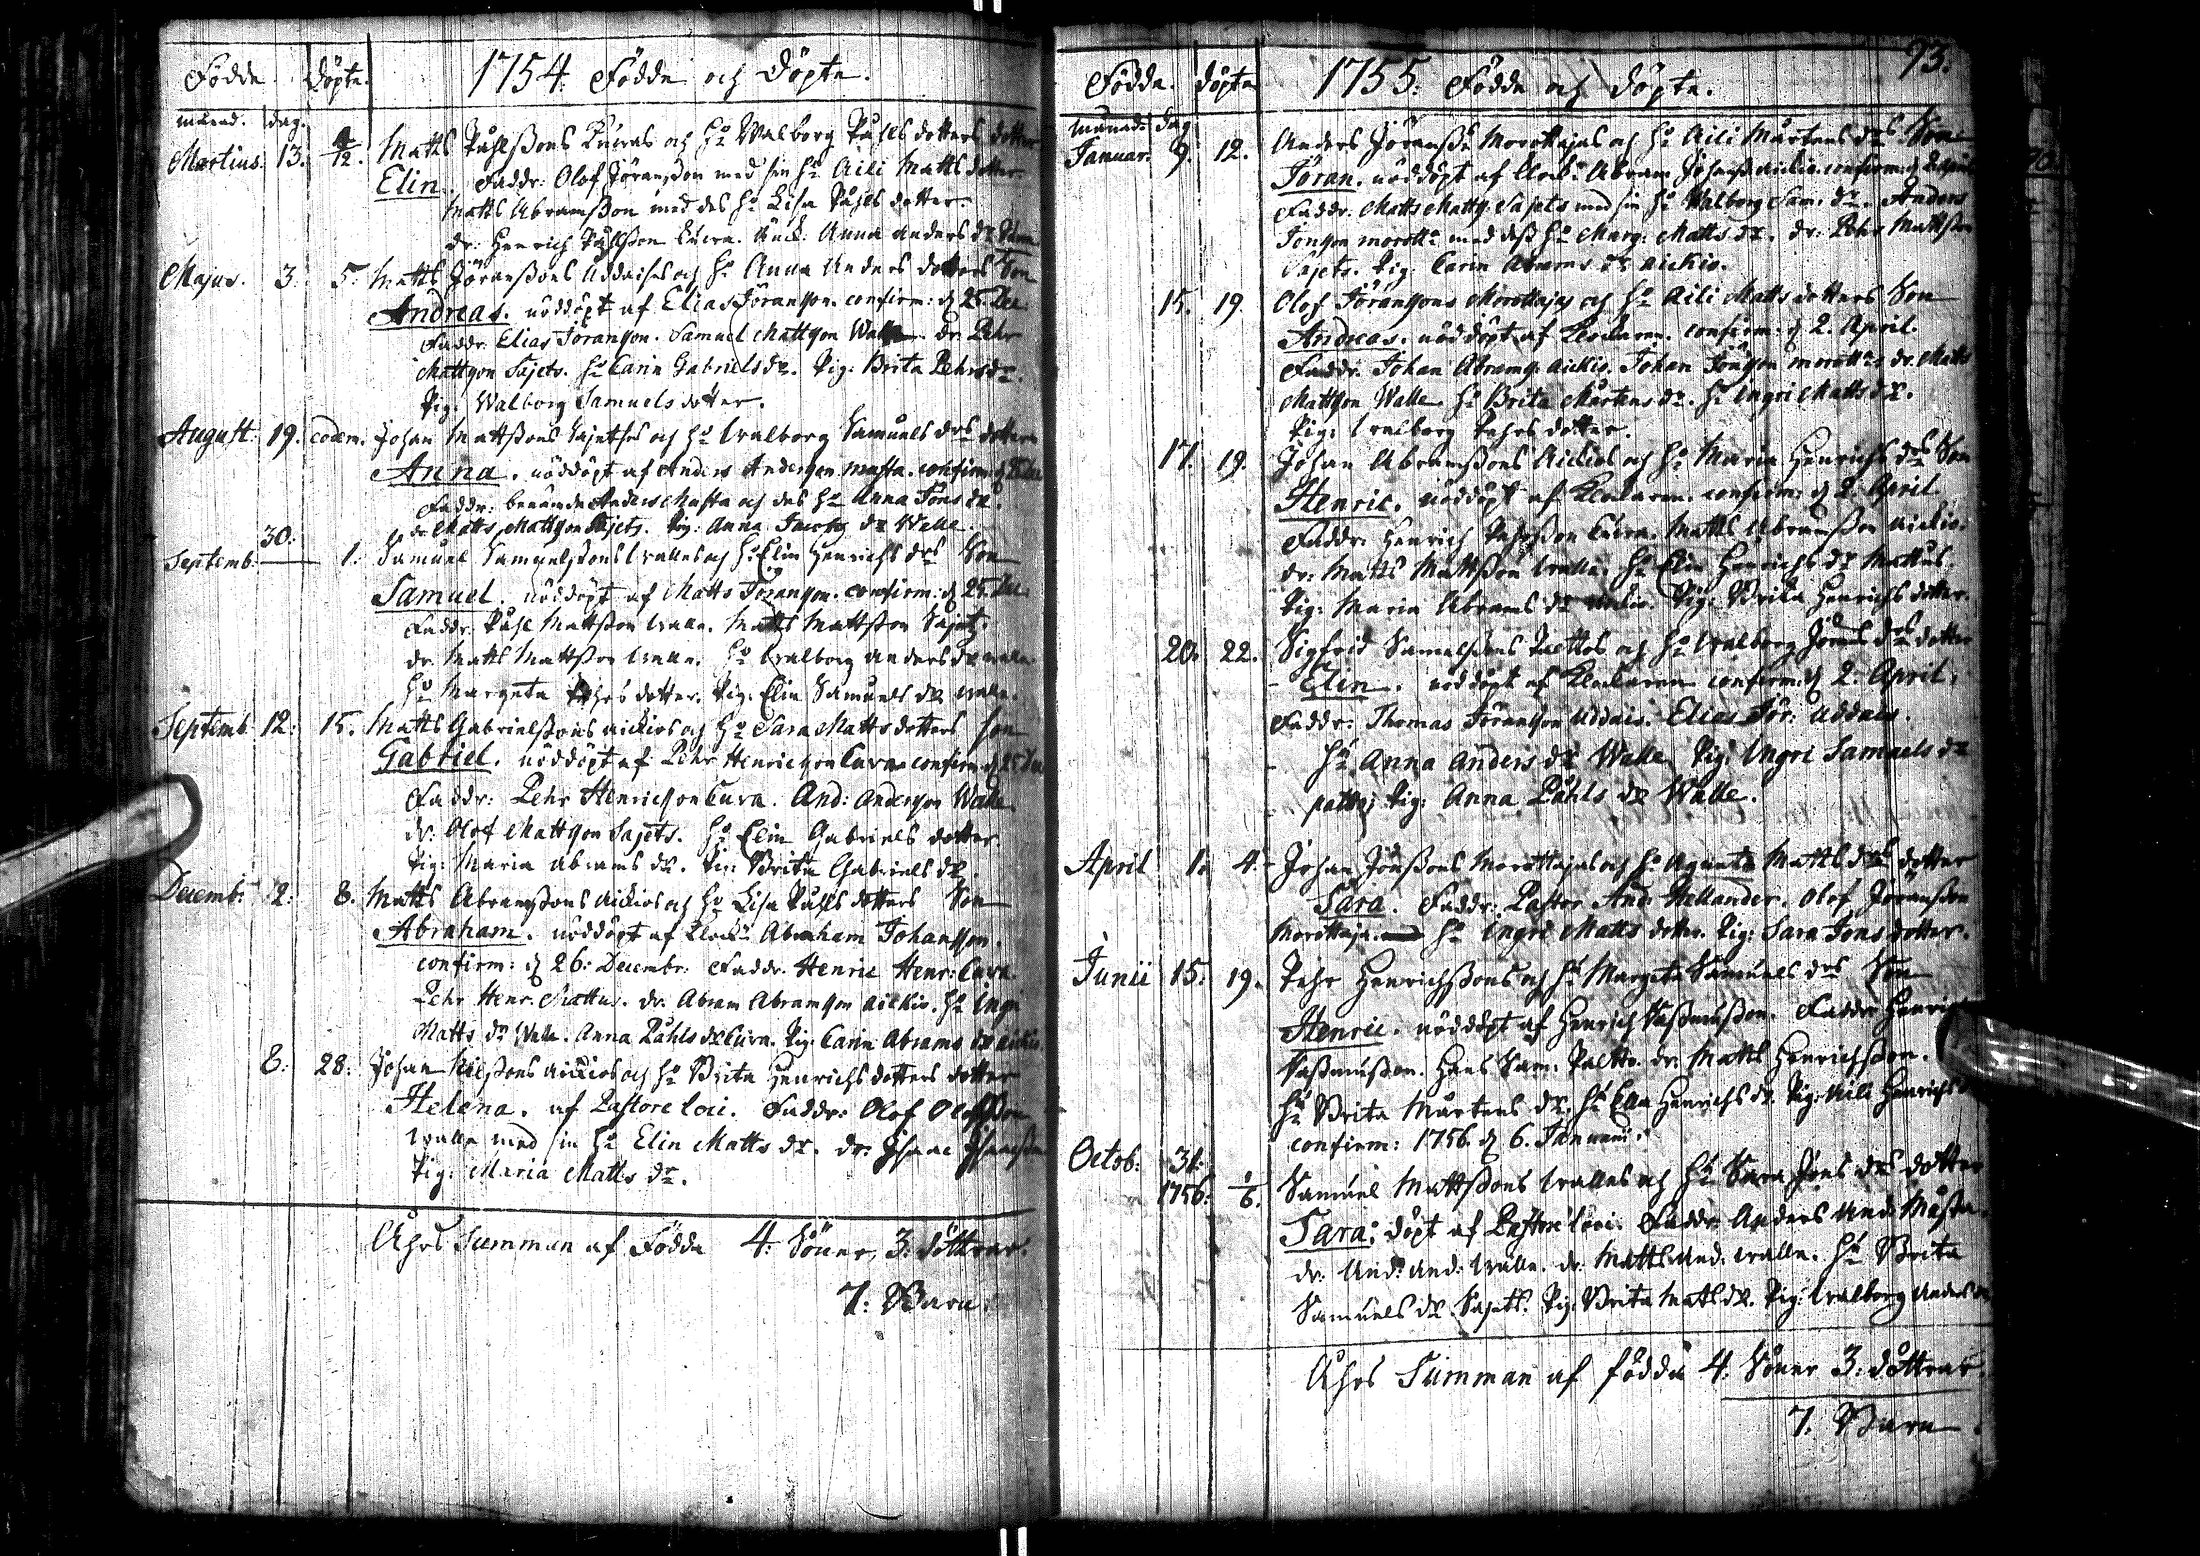 Födde Döpte. 1754. Födde och Döpte.
månad. dag.
Martius. 13. 4/12. Matts Påhlssons Kuivas och Hu Walborg Påhls dotters dotter
Elin. Faddr: Olof Jöransson med sin Hu Aili Matts dotter
Matts Abramsson med des Hu Lisa Påhls dotter.
dr: Henrich Påhlsson Anna Anders dr
Majus. 3. 5. Matts Jöranssons Uddais och Hu Anna Anders dotters Son
Andreas. nöddöpt af Elias Jöransson. confirm: d 25. Dec
Faddr: Elias Jöransson. Samuel Mattsson Walle dr: Pehr
Mattsson Sajets. Hu Carin Gabriels dr. Pig: Brita Pehrs dr.
Pig: Walborg Samuels dotter.
August: 19. eodem. Johan Mattssons Sajets och Hu Walborg Samuels drs dotter
Anna. nöddöpt af Anders Andersson Musta. confirm: d
Faddr: benämde Anders Musta och des Hu Anna Jöns dr.
dr Matts Mattsson Sajets. Pig: Anna dr Walle.
30:
Septemb: 1. Samuel Samuelssons Walles och Hu Elin Henrichs drs Son
Samuel. nöddöpt af Matts Jöransson. confirm: d 25. Dec.
Faddr: Påhl Mattsson Walle. Matts Mattsson Sajets.
dr. Matts Mattsson Walle. Hu Walborg Anders dr Walle
Hu Margeta Pehrs dotter. Pig: Elin Samuels dr Walle.
Septemb 12: 15. Matts Gabrielssons Aickios och Hu Sara Matts dotters Son
Gabriel. nöddöpt af Pehr Henricsson Cura confirm: d 25 Dec
Faddr: Pehr Henricsson Cura. And: Andersson Walle
dr: Olof Mattsson Sajets. Hu Elin Gabriels dotter
Pig: Maria Abrams dr. Pig: Brita Gabriels dr.
Decemb: 2: 8. Matts Abramssons Aickios och Hu Lisa Påhls dotters Son
Abraham. nöddöpt af Klock: Abraham Johansson.
confirm: d 26: Decembr: Faddr: Henric Henr: Cura.
Pehr Henr. Mattus. dr. Abram Abramsson Aickio. Hu Ingr
Matts dr Walle. Anna Påhls dr Cura. Pig: Carin Abrams dr Aickio
8: 28: Johan Nilssons Aickios och Hu Brita Henrichs dotters dotter
Helena. af Pastore loci. Faddr: Olof Olofsson
Walle med sin Hu Elin Matts dr. dr: Isaac Isaacsson
Pig: Maria Matts dr.
Åhrs Summan af Födda 4: Söner, 3: döttrar.
7: Barn:
93.
Födde. Döpte 1755: Födde och Döpte.
Månad: dag
Januar. 9. 12. Anders Jöranss: Morottajas och Hu Aili Mårtens drs Son
Jöran. nöddöpt af Klock: Abram Johanss: Aickio. confirm: d 2 April
Faddr: Matts Matts: Sajets med sin Hu Walborg Sam: dr. Anders
Jonsson morott: med dess Hu Marg: Matts dr. dr: Pehr Mattsson
Sajets. Pig: Carin Abrams dr Aickio.
15. 19. Olof Jöranssons Morottajas och Hu Aili Matts dotters Son
Andreas. nöddöpt af Klockaren. confirm: d 2. April.
Faddr: Johan Abrams: Aickio. Johan Jönsson morott: dr. Matts
Mattsson Walle. Hu Brita Mårtens dr. Hu Ingri Matts dr.
Pig: Walborg Pehrs dotter.
17. 19. Johan Abramssons Aickios och Hu Maria Henrichs drs Son
Henric. nöddöpt af Klockaren. confirm: d 2. April
Faddr: Henrich Cura. Matts Abramsson Aickio.
dr: Matts Mattsson Walle. Hu Elin Henrichs dr Mattus.
Pig: Maria Abrams dr Aickio. Pig: Brita Henrichs dotter.
20. 22. Sigfrid Samuelssons Paltos och Hu Walborg Jörans drs dotter
Elin. nöddöpt af Klockaren confirm: d 2. April.
Faddr: Thomas Jöransson Uddais. Elias Jör: Uddais.
Hu Anna Anders dr Walle. Pig: Ingri Samuels dr
Pig: Anna Påhls dr Walle.
April 1. 4. Johan Jönssons Morottajas och Hu Agneta Matts drs dotter
Sara. Faddr: Pastor And: Hellander. Olof Jöransson
Morottaja. Hu Ingri Matts dotter. Pig: Sara Jöns dotter.
Junii 15. 19. Pehr Henrichssons och Hu Margeta Samuels drs Son
Henric. nöddöpt af Henrich Rassmusson. Faddr: Henrich
Rassmusson. Hans Sam: Paltto. dr: Matts Henrichsson.
Hu Brita Mårtens dr. Hu Elin Henrichs dr. Pig: Aili Henrichs
confirm: 1756. d 6. Januarii.
Octob: 31:
1756: 1/6. Samuel Mattssons Walles och Hu Sara Jöns drs dotter
Sara; döpt af Pastore loci. Faddr: Anders And: Musta.
dr: And: And: Walle. dr: Matts And: Walle. Hu Brita
Samuels dr Sajets. Pig: Brita Matts dr. Pig: Walborg Anders dr
Åhrs Summan af födda 4. Söner 3: döttrar.
7. Barn.